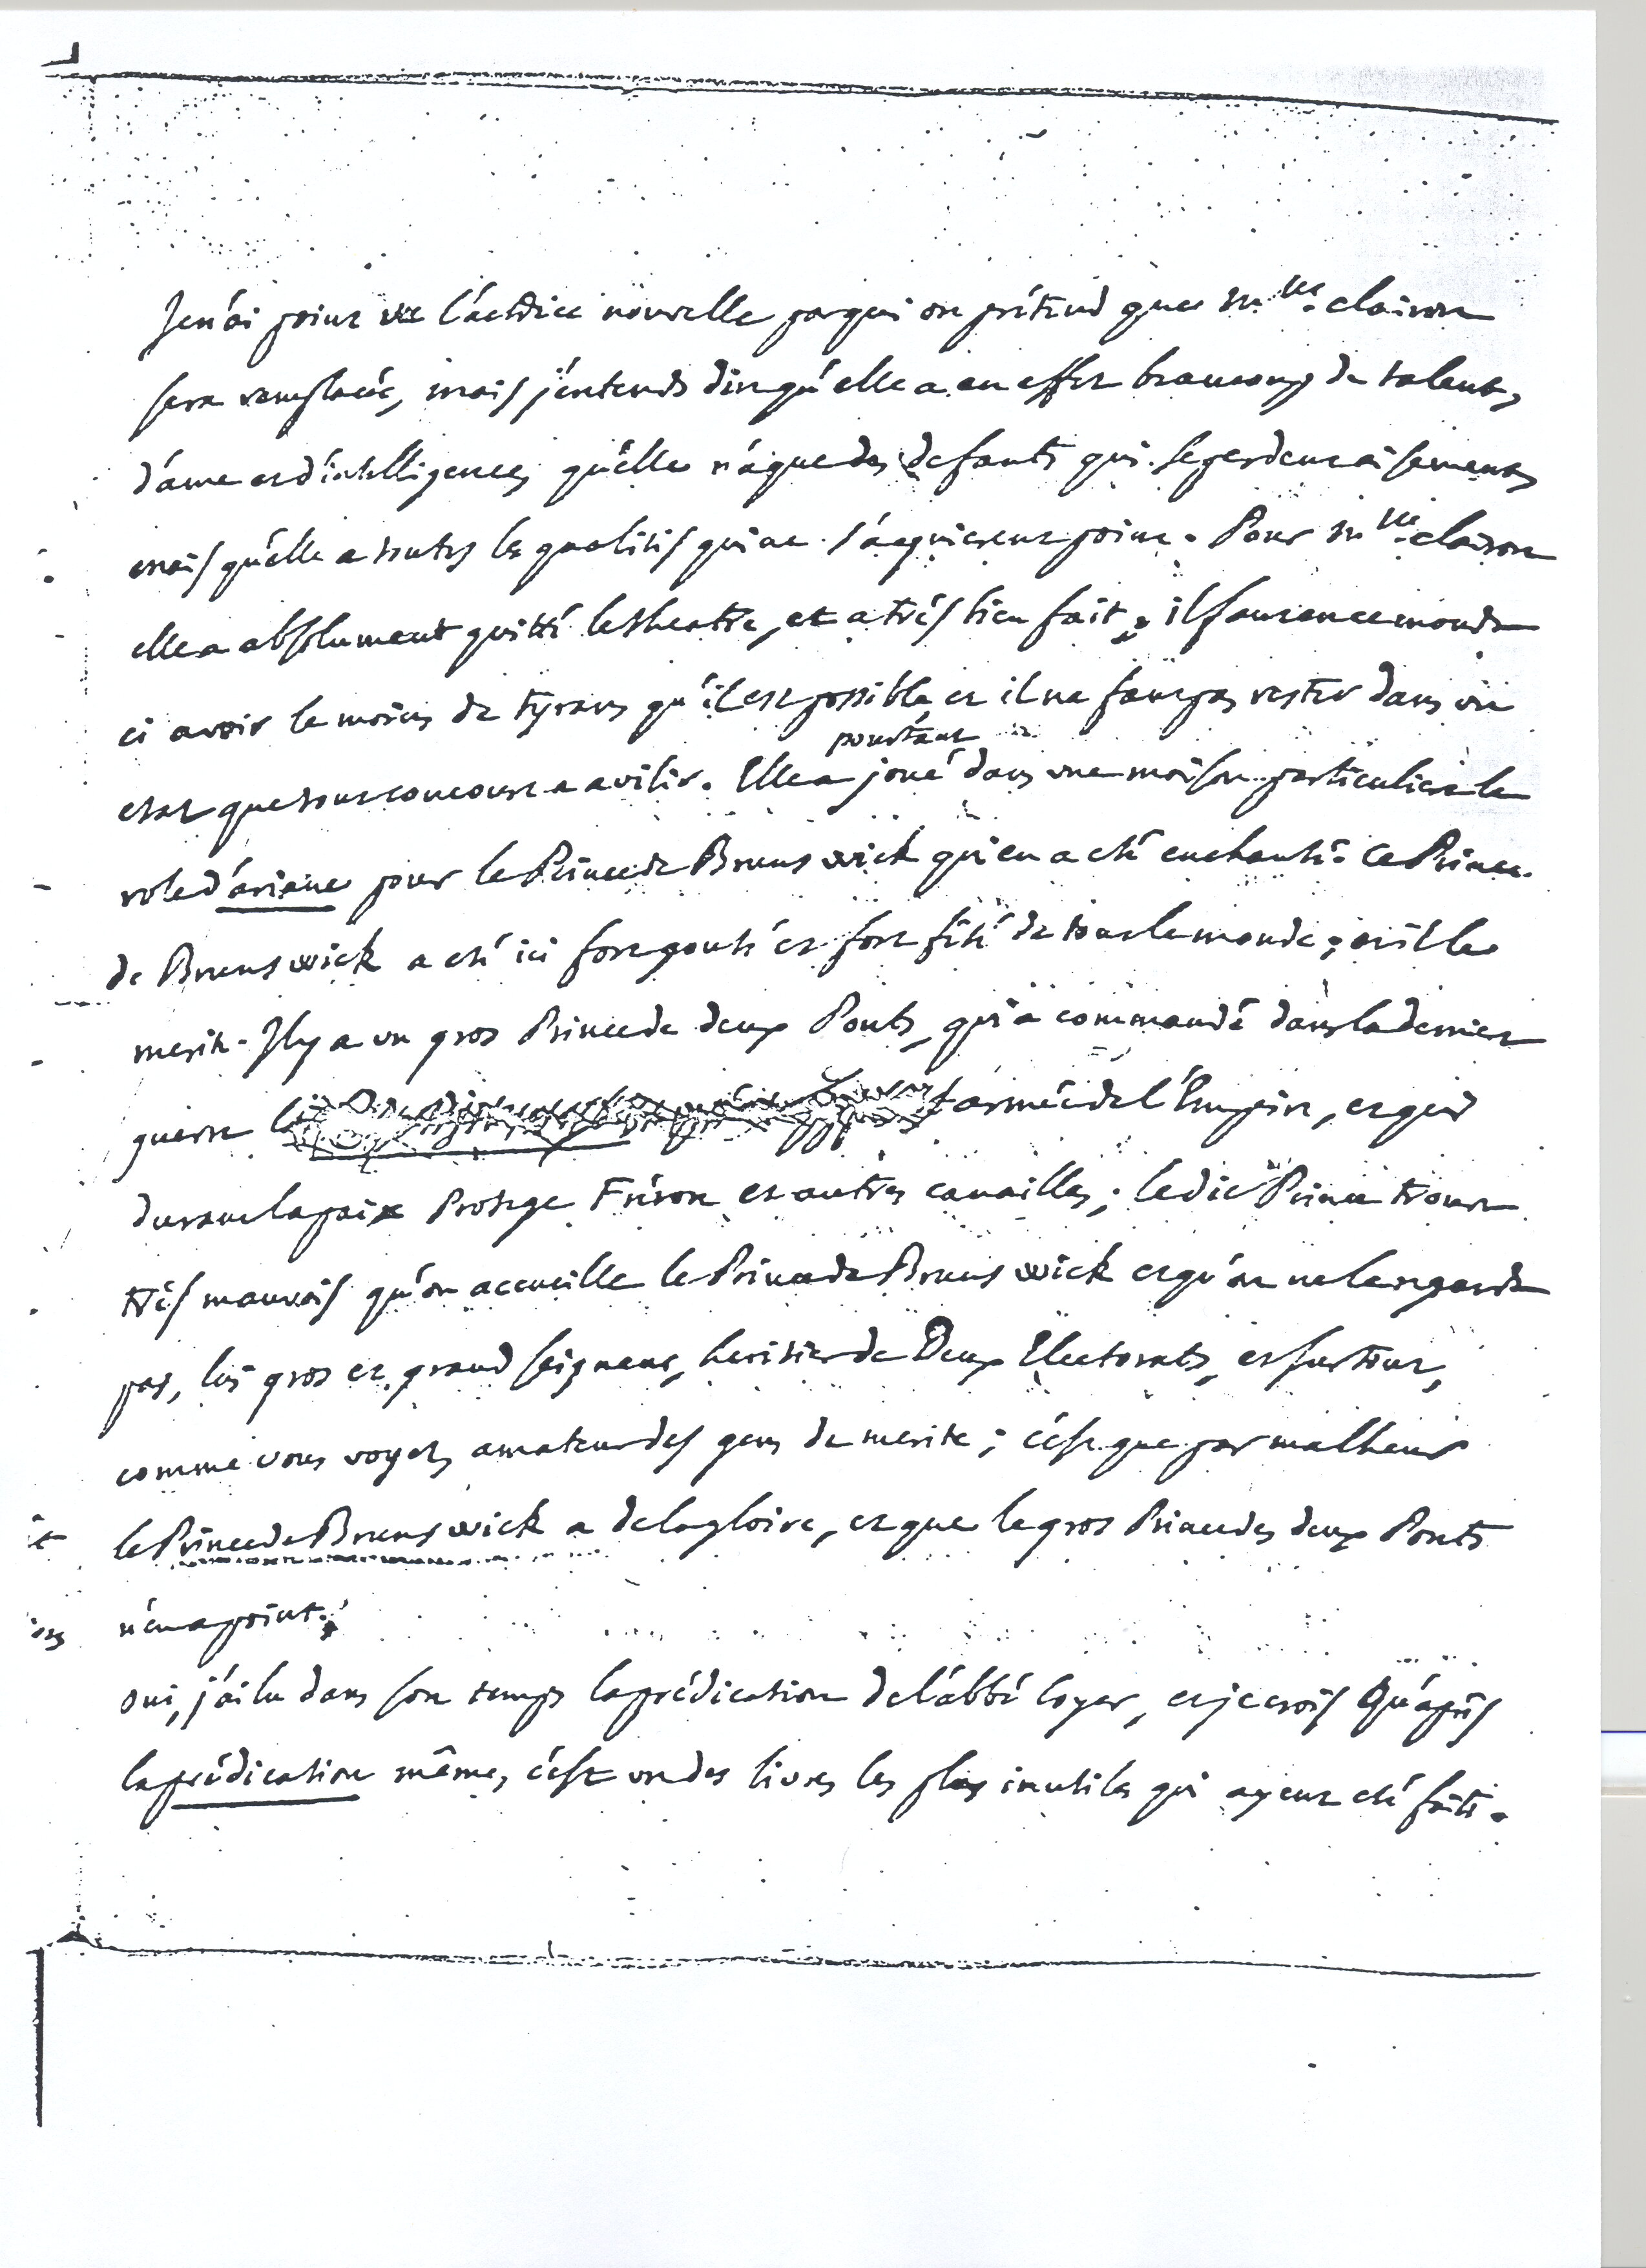 Je n'ai point vu l'actrice nouvelle par qui on prétend que M.lle clairon
sera remplacée, mais j'entends dire qu'elle a en effet beaucoup de talent,
d'ame et d'intelligence, qu'elle n'a que des defauts qui se perdent aisement,
mais qu'elle a toutes les qualités qui ne s'acquierent point. Pour M.lle clairon
elle a absolument quitté le theatre, et a très bien fait ; il faut en ce monde
ci avoir le moins de tyrans qu'il est possible, et il ne faut pas rester dans un
etat que tout concourt a avilir. Elle a pourtant joué dans une maison particuliere le
role d'ariane pour le Prince de Brunswick qui en a eté enchanté. Ce Prince
de Brunswick a eté ici fort gouté et fort fêté de tout le monde ; et il le
merite. Il y a un gros Prince de deux Ponts, qui a commandé dans la derniere
guerre l'armée de l'Empire, et qui
durant la paix Protege Fréron et autres canailles ; ledit Prince trouve
très mauvais qu'on accueille le Prince de Brunswick et qu'on ne le regarde
pas, lui gros et grand seigneur, heritier de Deux Electorats, et surtout,
comme vous voyez, amateur des gens de merite ; c'est que par malheur
le Prince de Brunswick a de la gloire, et que le gros Prince des deux Ponts
n'en a point.
oui, j'ai lu dans son temps la prédication de l'abbé Coyer, et je crois Qu'après
la prédication même, c'est un des livres les plus inutiles qui ayent eté faits.